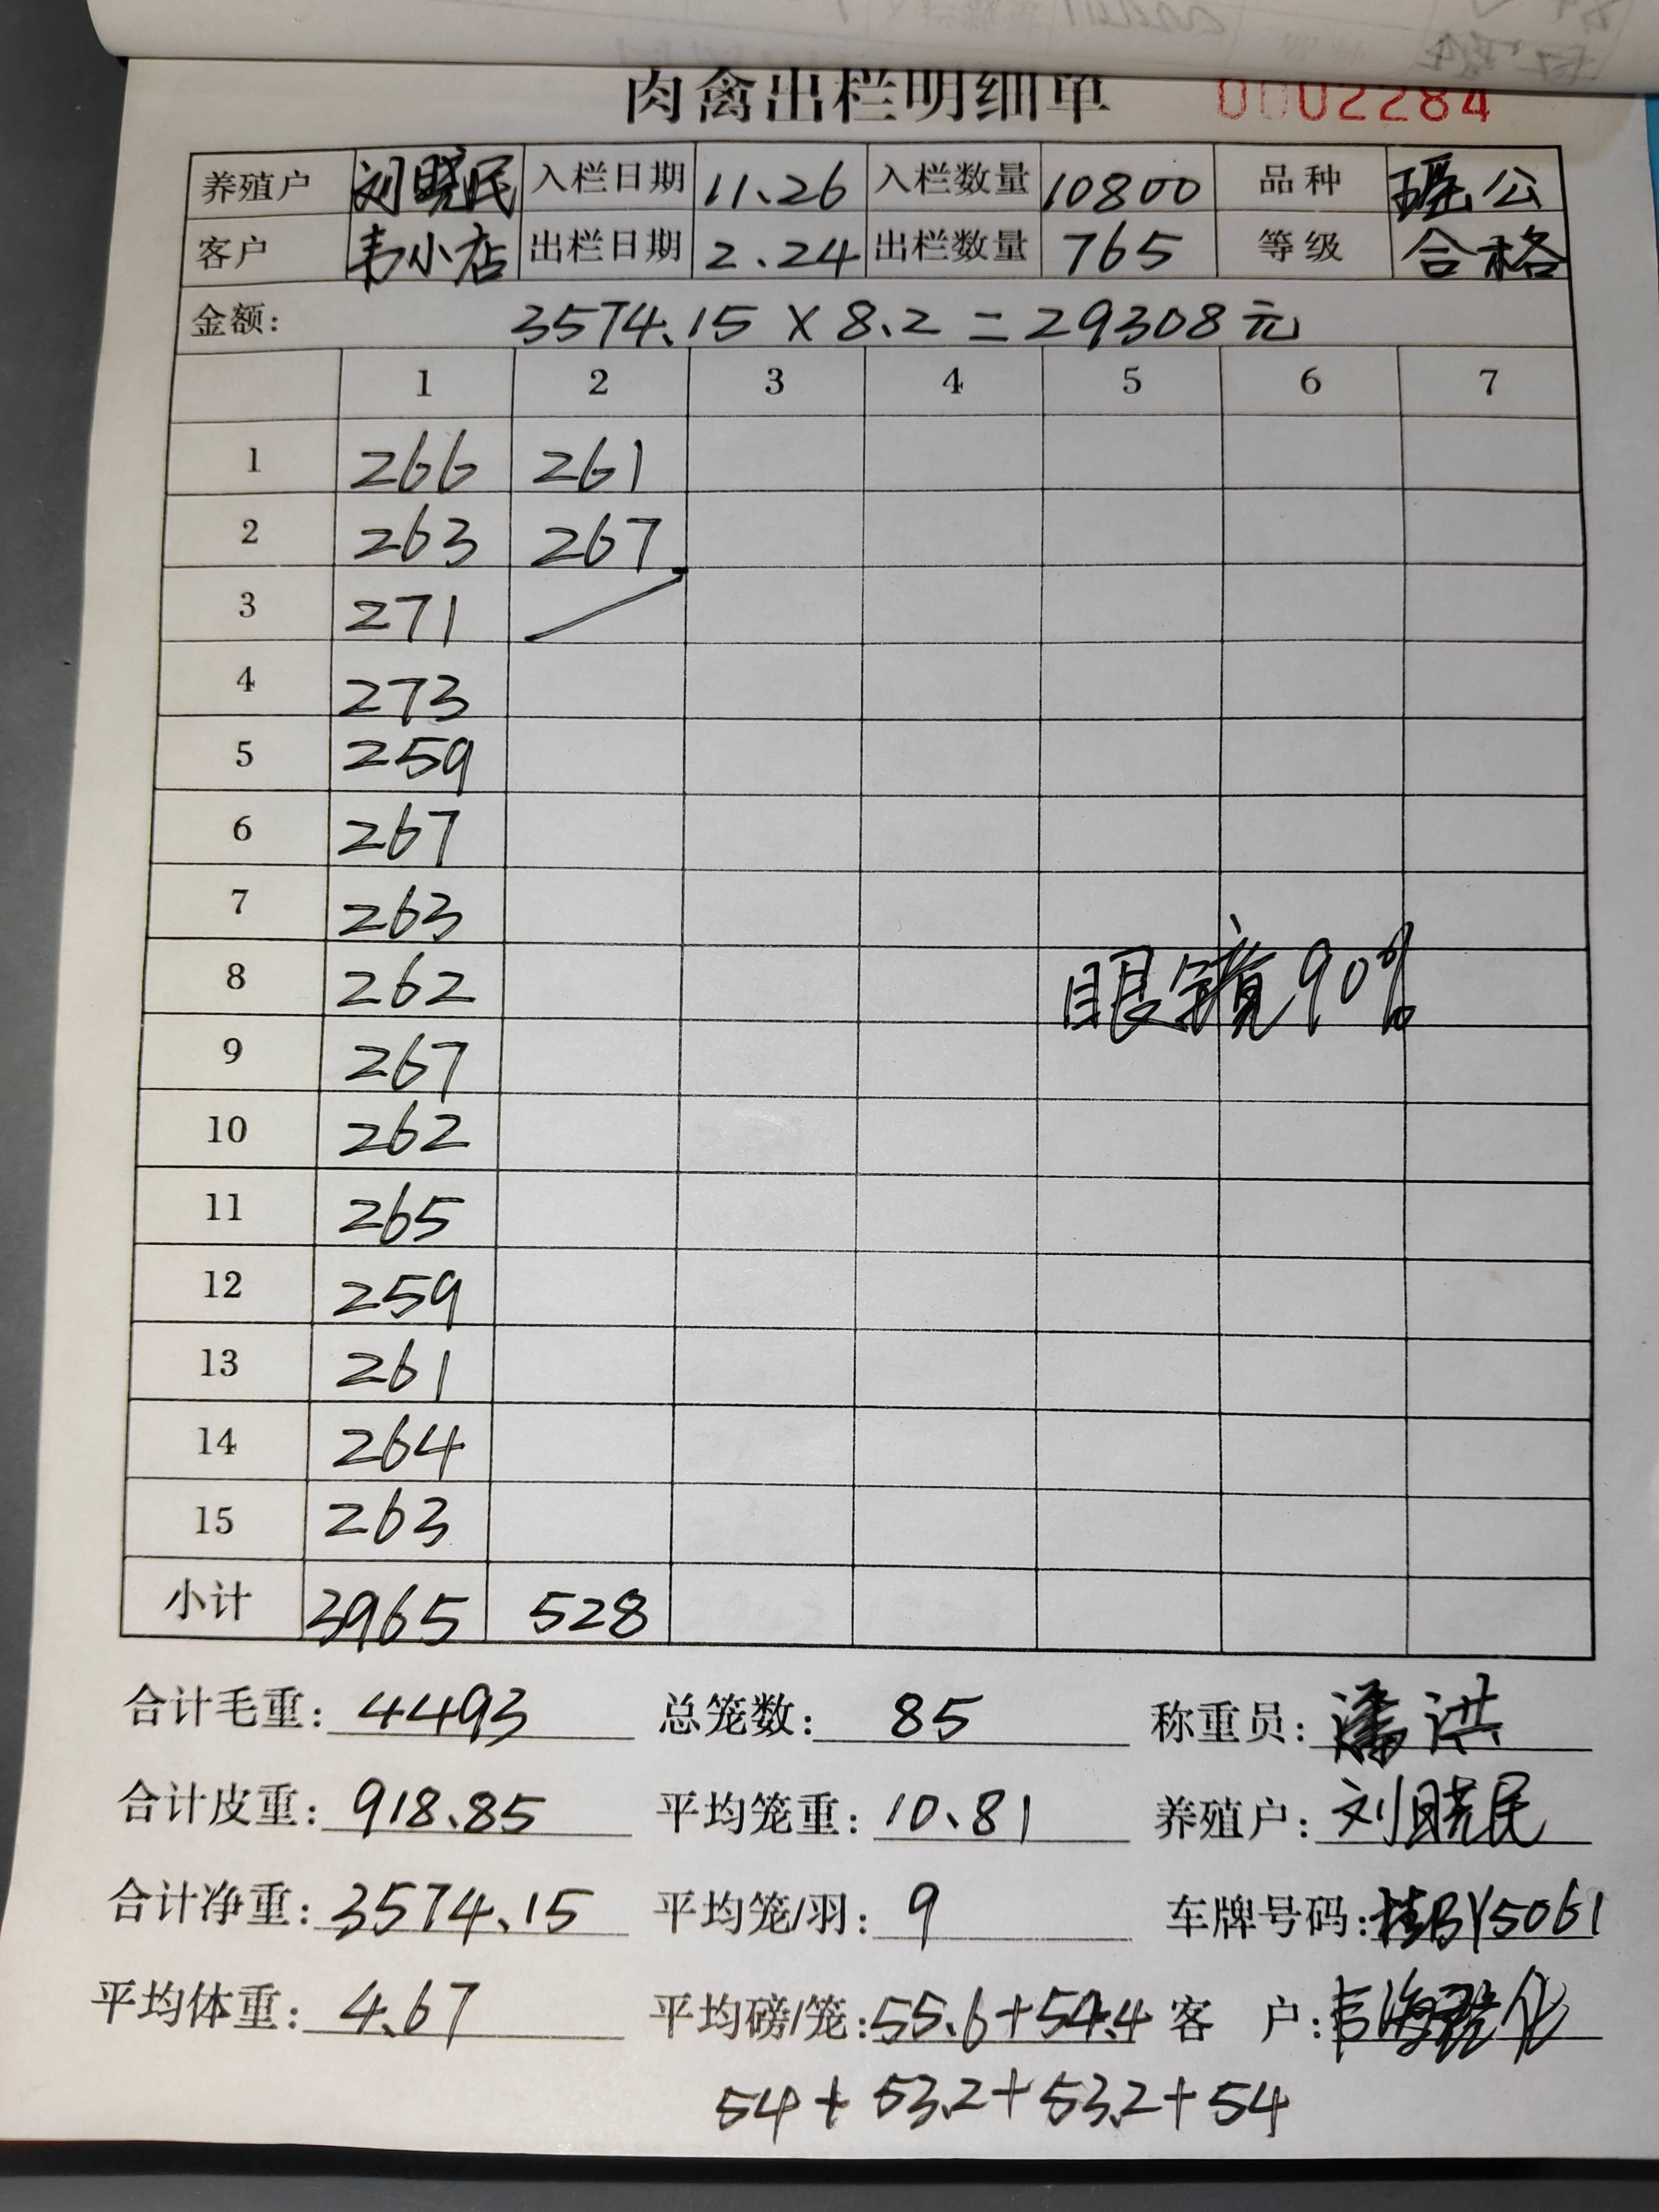 肉禽出栏明细单 0002284
养殖户 刘晓民 入栏日期 11.26 入栏数量 10800 品种 瑶公
客户 韦小店 出栏日期 2.24 出栏数量 765 等级 合格
金额: 3574.15 X 8.2 = 29308元
1 2 3 4 5 6 7
1 266 261
2 263 267
3 271
4 273
5 259
6 267
7 263
8 262 眼镜90%
9 267
10 262
11 265
12 259
13 261
14 264
15 263
小计 3965 528
合计毛重: 4493 总笼数: 85 称重员: 潘洪
合计皮重: 918.85 平均笼重: 10.81 养殖户: 刘晓民
合计净重: 3574.15 平均笼/羽: 9 车牌号码: 桂BY5061
平均体重: 4.67 平均磅/笼: 55.6+54.4 客 户:
54+53.2+53.2+54